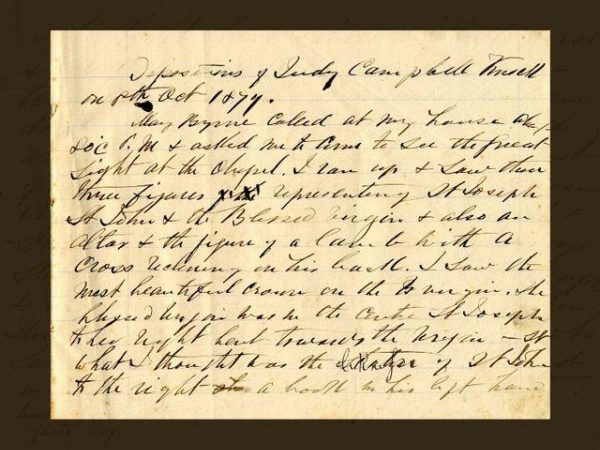 Depositions of Judy Campbell
on 8th Oct 1879.
Mary Byrne called at my house
8 o'c P. M & asked me to come to see the great
Sight at the Chapel. I ran up & Saw then
three figures representing St Joseph
St John & the Blessed Virgin & also an
altar & the figure of a lamb with a
Cross reclining on his back. I saw the
most beautiful Crown on the virgin. the
blessed virgin was in the Centre St Joseph
to her right bent towards the virgin – St
what I thought was the of St John
to the right a book in his left hand